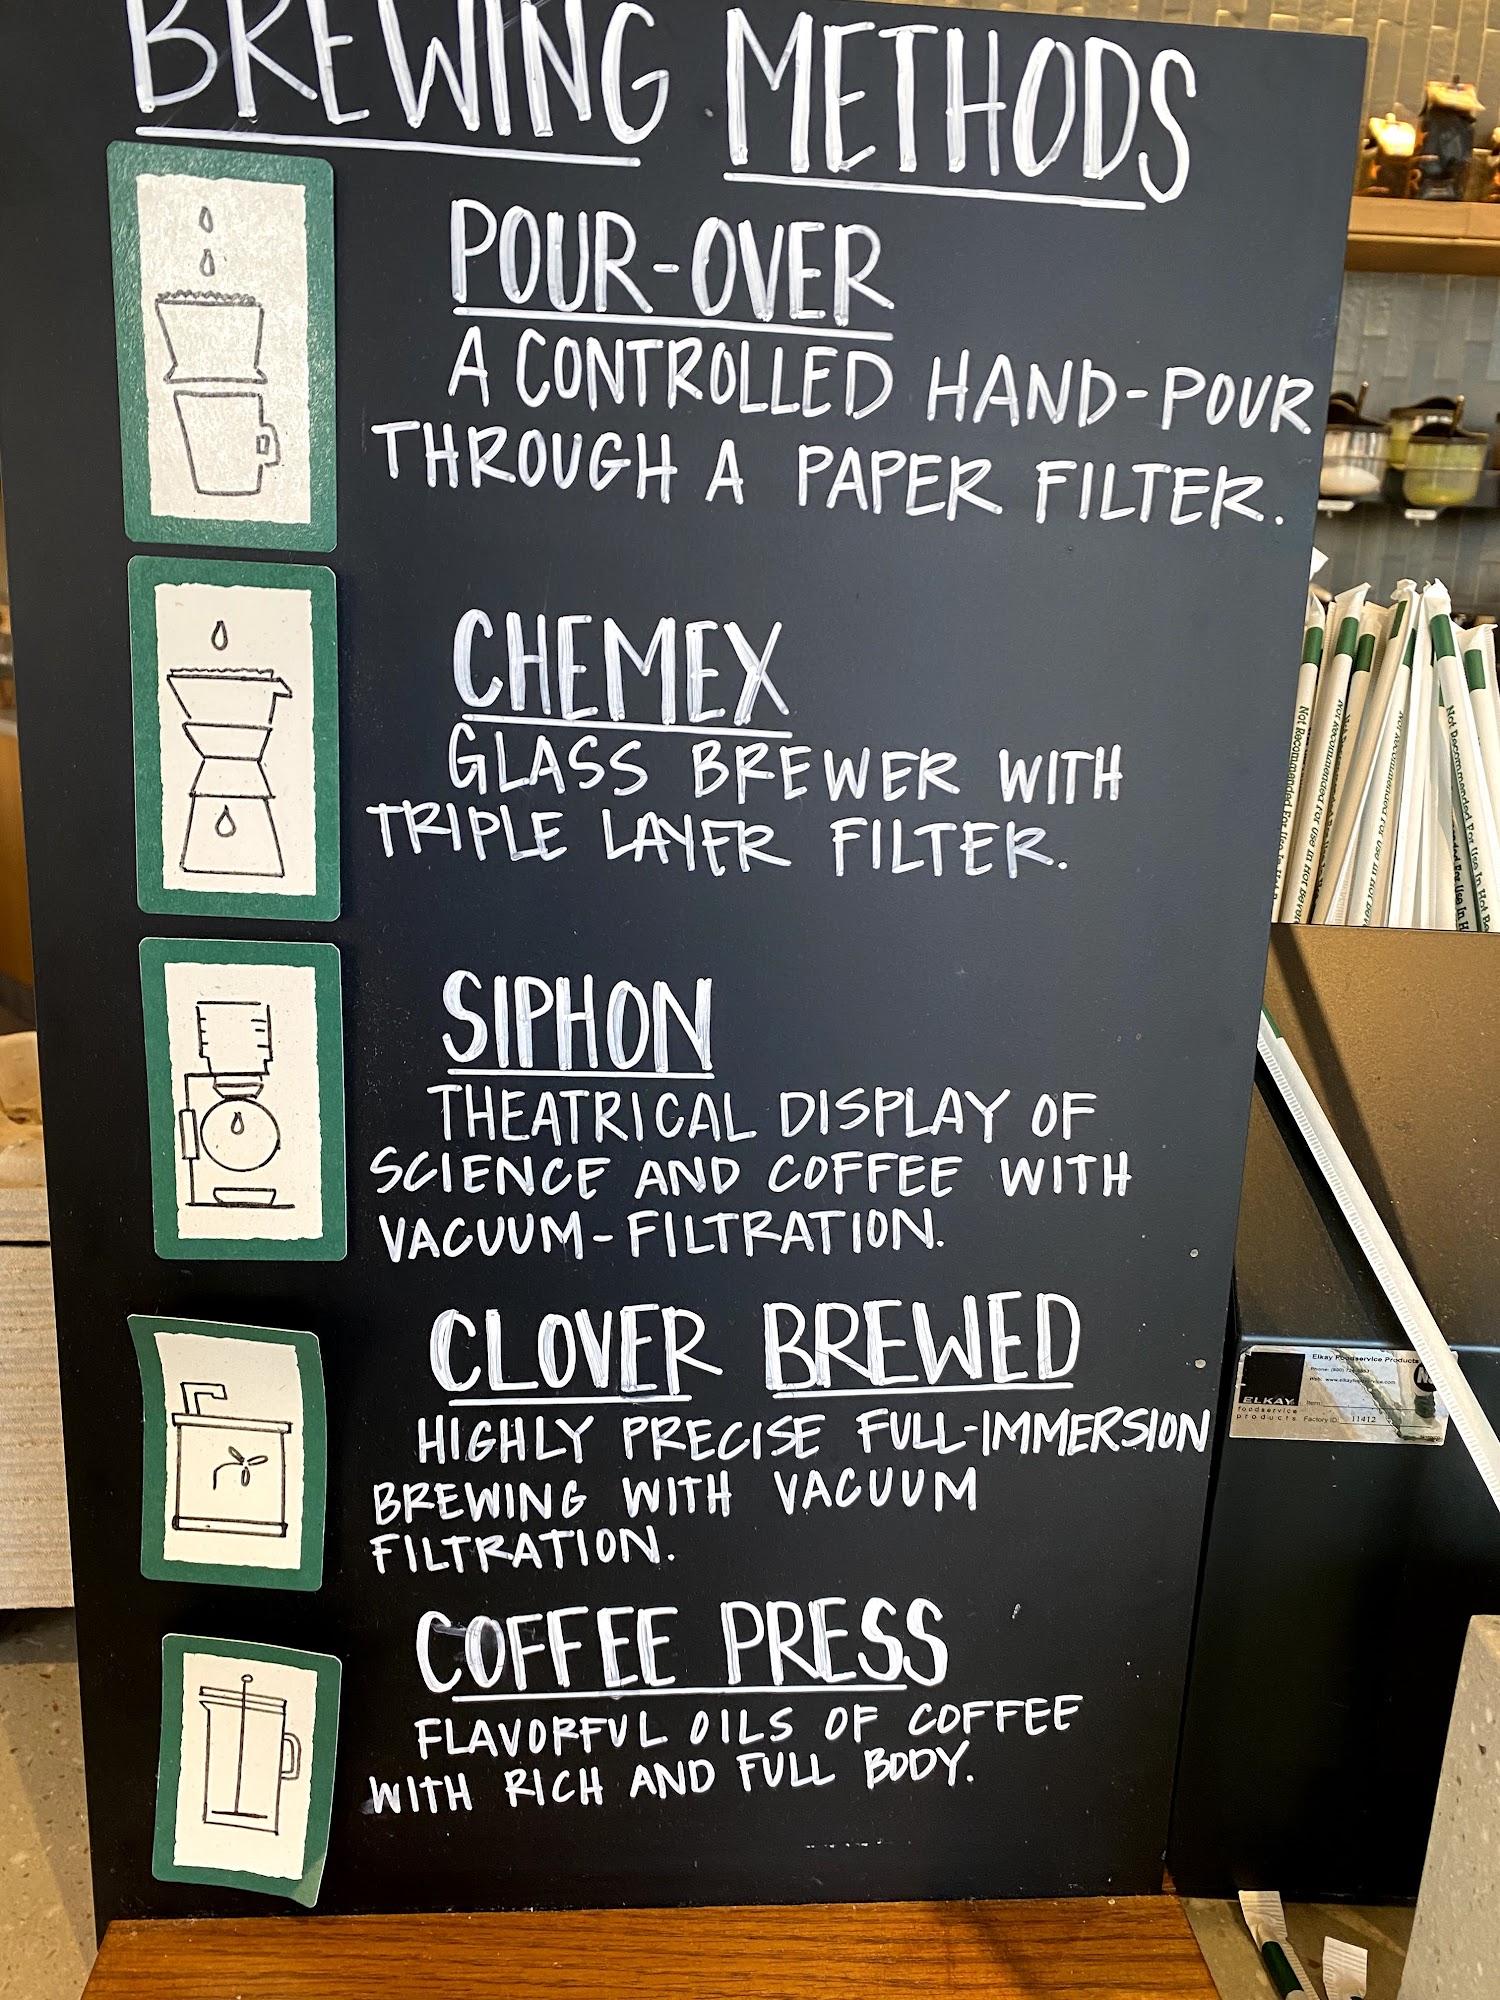 BREWING METHODS
POUR-OVER
A CONTROLLED HAND-POUR
THROUGH A PAPER FILTER.
CHEMEX
GLASS BREWER WITH
TRIPLE LAYER FILTER.
SIPHON
THEATRICAL DISPLAY OF
SCIENCE AND COFFEE WITH
VACUUM-FILTRATION.
CLOVER BREWED
HIGHLY PRECISE FULL-IMMERSION
BREWING WITH VACUUM
FILTRATION.
COFFEE PRESS
FLAVORFUL OILS OF COFFEE
WITH RICH AND FULL BODY.
Not Recommended For Use In Hot
Elkay Foodservice Products
ELKAY
foodservice
products
Factory ID 11412